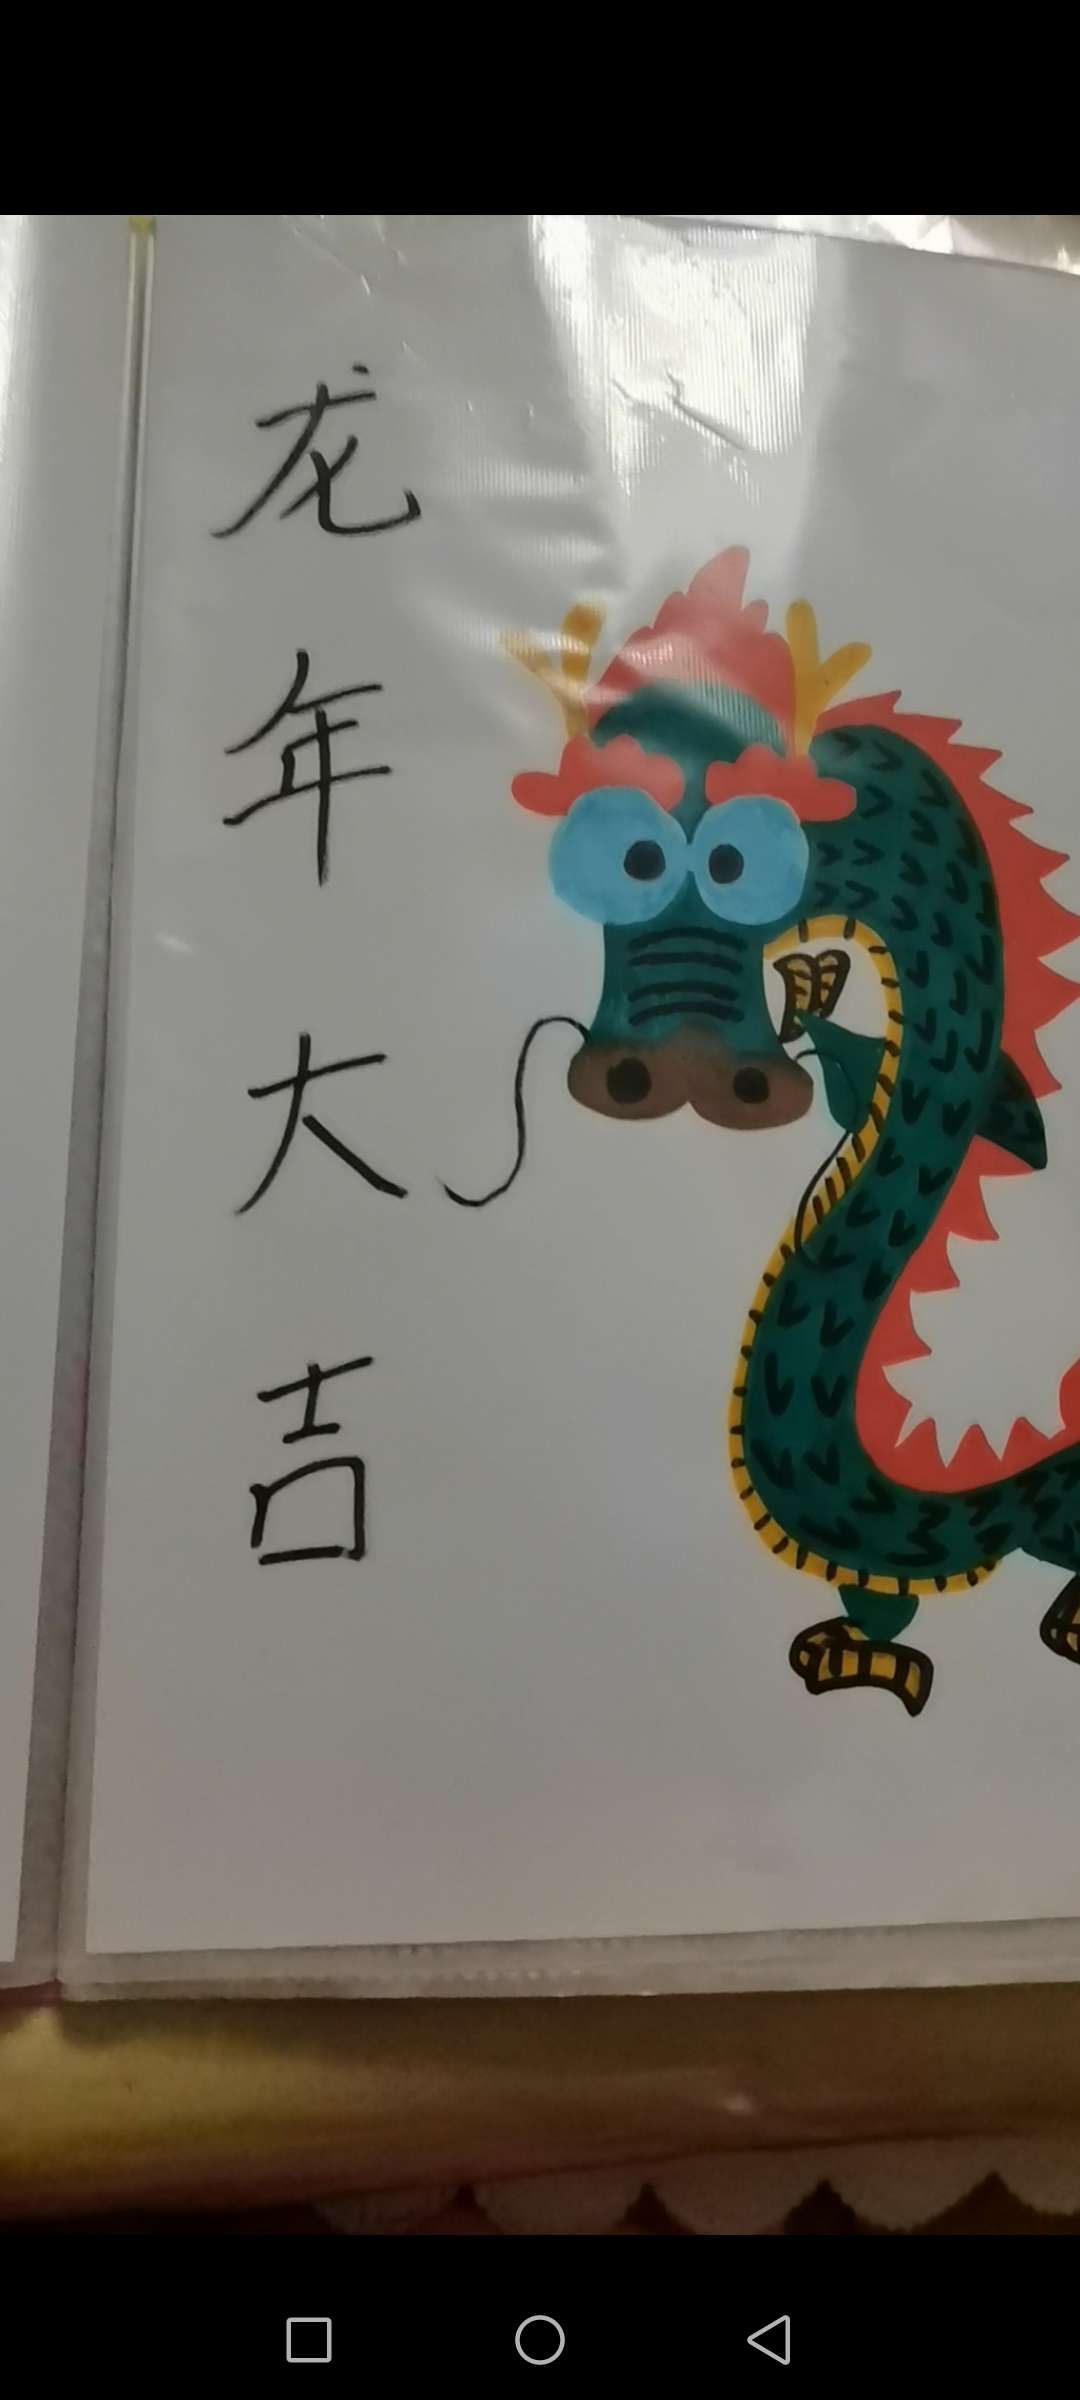 龙年大吉